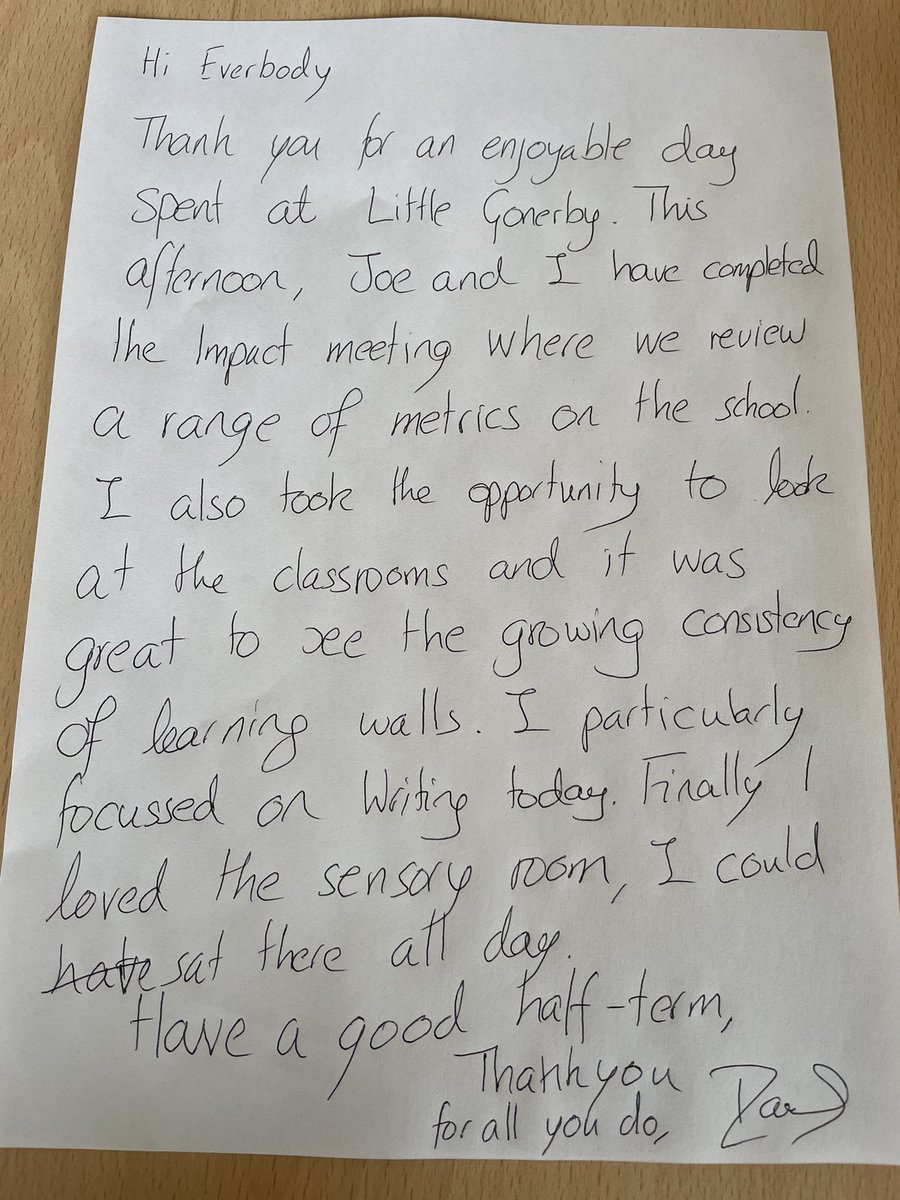 Hi Everbody
Thank you for an enjoyable day
spent at Little Gonerby. This
afternoon, Joe and I have completed
the Impact meeting where we review
a range of metrics on the school.
I also took the opportunity to look
at the classrooms and it was
great to see the growing consistency
of learning walls. I particularly
focussed on Writing today. Finally I
loved the sensory room, I could
have sat there all day.
Have a good half-term,
Thankyou
for all you do,